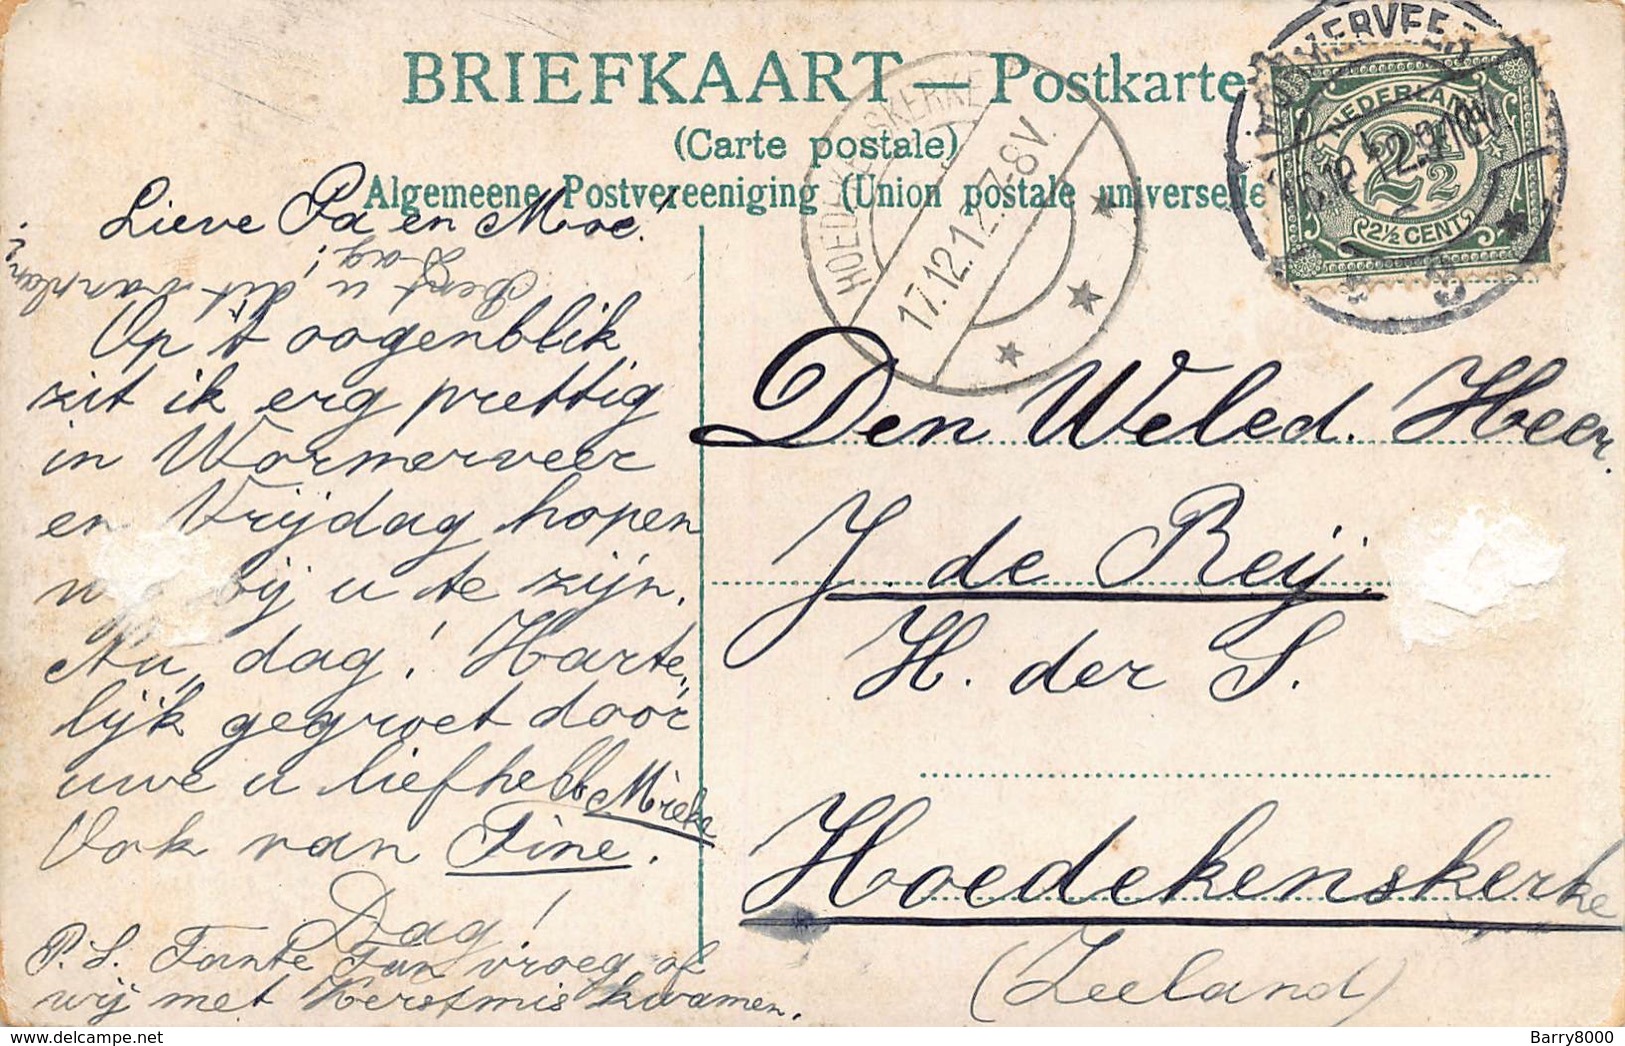 BRIEFKAART — Postkarte
(Carte postale)
Algemeene Postvereeniging (Union postale universelle
NEDERLAND
2½
2½ CENT
17.12.12.7-8V.
Lieve Pa en Moe!
Dag!
u dit
Op 't oogenblik
zit ik erg prettig
in Wormerveer
en Vrijdag hopen
bij u te zijn.
Nu, dag! Harte-
lijk gegroet door
uwe u liefhebb.
Mieke
Ook van Fine.
Dag!
P.S. Tante vroeg of
wij met Kerstmis kwamen.
Den Weled. Heer.
J. de Reij.
H. der S.
Hoedekenskerke
(Zeeland)
Barry8000